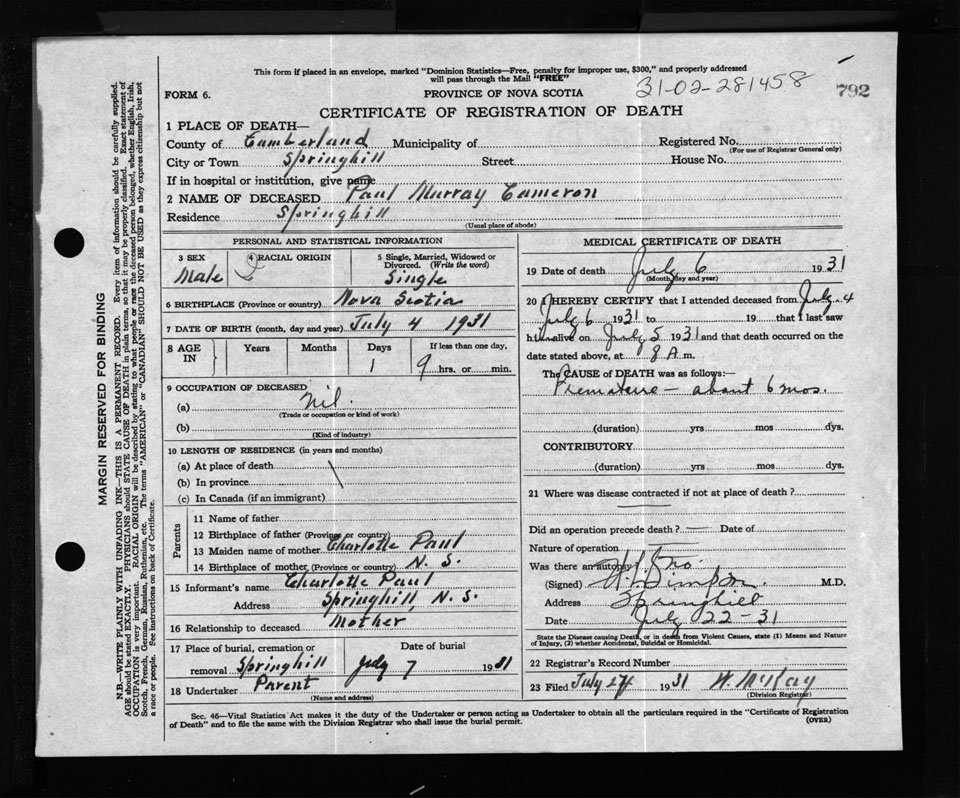 This form if placed in an envelope, marked "Dominion Statistics—Free, penalty for improper use, $300," and properly addressed
will pass through the Mail "FREE"
31-02-281458
792
FORM 6.
PROVINCE OF NOVA SCOTIA
CERTIFICATE OF REGISTRATION OF DEATH
1 PLACE OF DEATH—
County of Cumberland Municipality of Registered No.
(For use of Registrar General only)
City or Town Springhill Street House No.
If in hospital or institution, give name
2 NAME OF DECEASED Paul Murray Cameron
Residence Springhill
(Usual place of abode)
PERSONAL AND STATISTICAL INFORMATION
3 SEX 4 RACIAL ORIGIN 5 Single, Married, Widowed or
Divorced. (Write the word)
Male Single
6 BIRTHPLACE (Province or country) Nova Scotia
7 DATE OF BIRTH (month, day and year) July 4 1931
8 AGE IN Years Months Days If less than one day,
1 9 hrs. or min.
9 OCCUPATION OF DECEASED
(a) nil.
(Trade or occupation or kind of work)
(b)
(Kind of industry)
10 LENGTH OF RESIDENCE (in years and months)
(a) At place of death
(b) In province
(c) In Canada (if an immigrant)
Parents
11 Name of father
12 Birthplace of father (Province or country)
13 Maiden name of mother Charlotte Paul
14 Birthplace of mother (Province or country) N. S.
15 Informant's name Charlotte Paul
Address Springhill, N. S.
16 Relationship to deceased Mother
17 Place of burial, cremation or Date of burial
removal Springhill July 7 1931
18 Undertaker Parent
(Name and address)
MEDICAL CERTIFICATE OF DEATH
19 Date of death July 6 1931
(Month, day and year)
20 I HEREBY CERTIFY that I attended deceased from July 4
July 6 1931 to 19 that I last saw
h alive on July 5 1931 and that death occurred on the
date stated above, at 8 A m.
The CAUSE OF DEATH was as follows:—
Premature — about 6 mos.
(duration) yrs mos dys.
CONTRIBUTORY
(duration) yrs mos dys.
21 Where was disease contracted if not at place of death?
Did an operation precede death? — Date of
Nature of operation —
Was there an autopsy? no
(Signed) Simpson M.D.
Address Springhill
Date July 22-31
State the Disease causing Death, or in death from Violent Causes, state (1) Means and Nature
of Injury, (2) whether Accidental, Suicidal or Homicidal.
22 Registrar's Record Number
23 Filed July 27 1931 W. McKay
(Division Registrar)
Sec. 46—Vital Statistics Act makes it the duty of the Undertaker or person acting as Undertaker to obtain all the particulars required in the "Certificate of Registration
of Death" and to file the same with the Division Registrar who shall issue the burial permit.
(OVER)
MARGIN RESERVED FOR BINDING
N.B.—WRITE PLAINLY WITH UNFADING INK—THIS IS A PERMANENT RECORD. Every item of information should be carefully supplied.
AGE should be stated EXACTLY. PHYSICIANS should STATE CAUSE OF DEATH in plain terms, so that it may be properly classified. Exact statement of
OCCUPATION is very important. RACIAL ORIGIN will be described by stating to what people or race the deceased person belonged, whether English, Irish,
Scotch, French, German, Russian, Ruthenian, etc. The terms "AMERICAN" or "CANADIAN" SHOULD NOT BE USED as they express citizenship but not
a race or people. See instructions on back of Certificate.